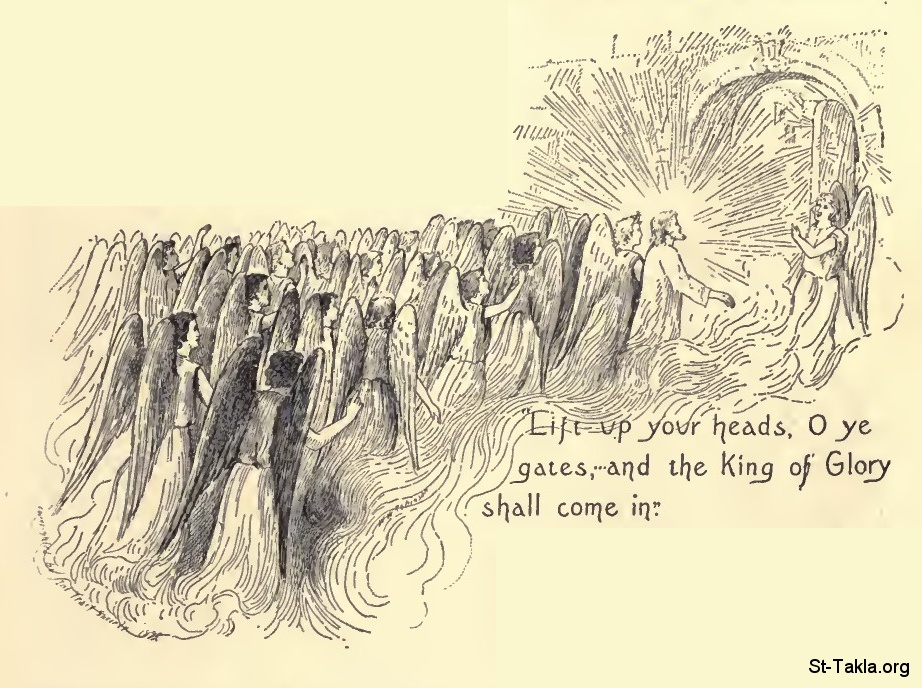 "Lift up your heads, O ye
gates, and the King of Glory
shall come in".
St-Takla.org